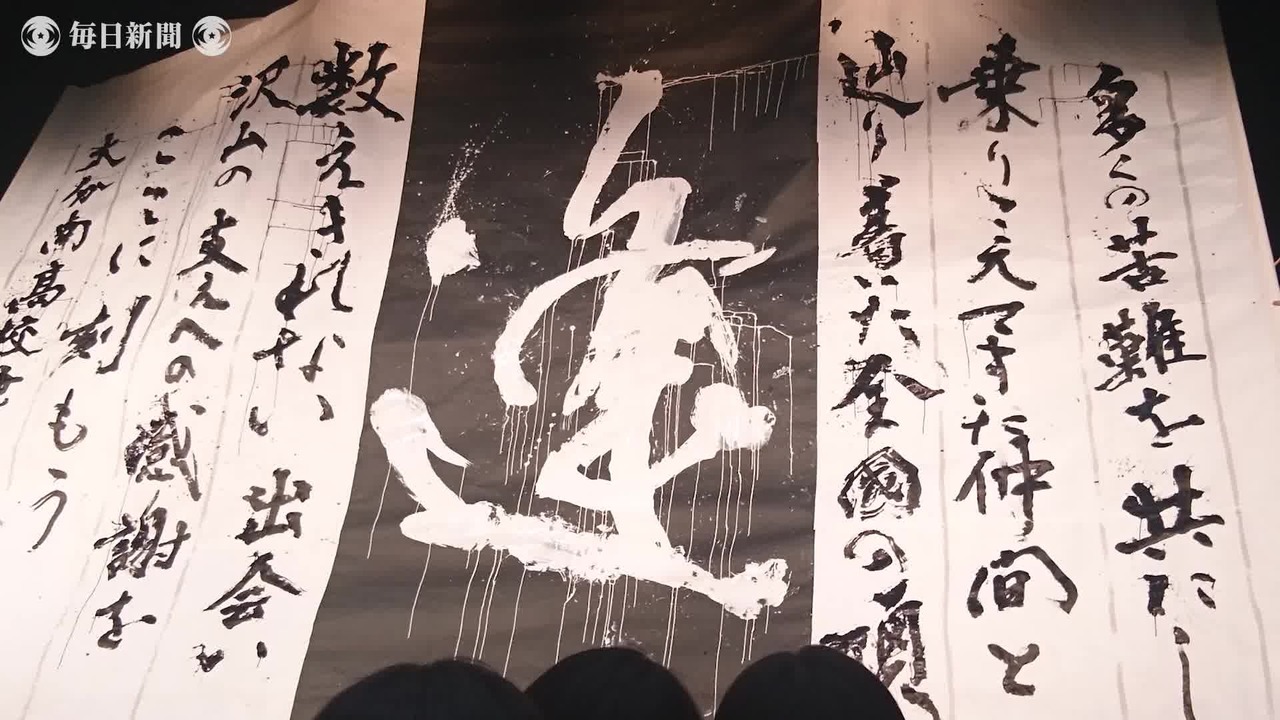 毎日新聞
多くの苦難を共にし
乗りこえてきた仲間と
辿り着いた全国の頂
数えきれない出会い
沢山の支えへの感謝を
ここに刻もう
大分南高校